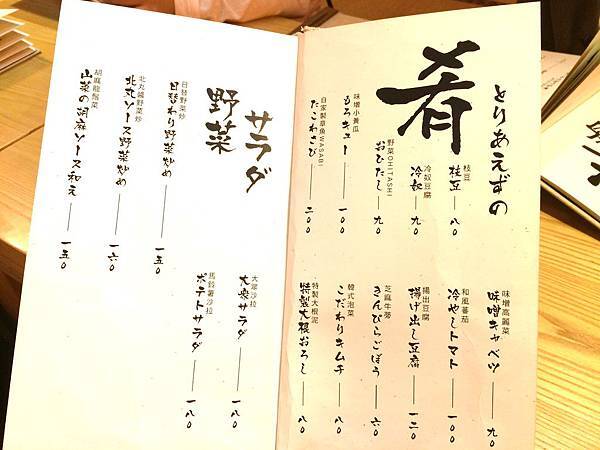 とりあえずの
肴
枝豆
枝豆 八〇
冷奴豆腐
冷奴 九〇
野菜OHITASHI
おひたし 九〇
味噌小黃瓜
もろキュー 一〇〇
自家製章魚WASABI
たこわさび 二〇〇
味噌高麗菜
味噌キャベツ 九〇
和風蕃茄
冷やしトマト 一〇〇
揚出豆腐
揚げ出し豆腐 一二〇
芝麻牛蒡
きんぴらごぼう 六〇
韓式泡菜
こだわりキムチ 八〇
特製大根泥
特製大根おろし 一八〇
サラダ
野菜
日替野菜炒
日替わり野菜炒め 一五〇
北丸醬野菜炒
北丸ソース野菜炒め 一六〇
胡麻龍鬚菜
山菜の胡麻ソース和え 一五〇
大眾沙拉
大衆サラダ 一八〇
馬鈴薯沙拉
ポテトサラダ 一八〇